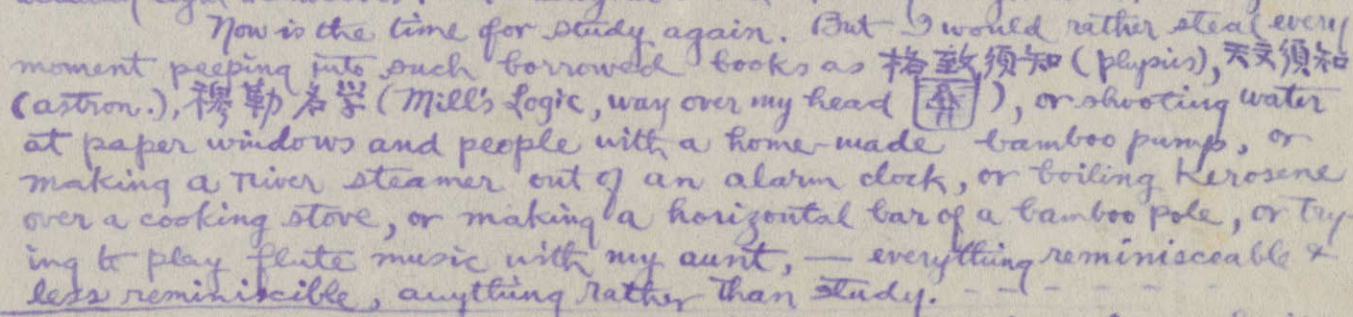 Now is the time for study again. But I would rather steal every
moment peeping into such borrowed books as 格致須知 (physics), 天文須知
(astron.), 穆勒名学 (Mill's Logic, way over my head), or shooting water
at paper windows and people with a home-made bamboo pump, or
making a river steamer out of an alarm clock, or boiling kerosene
over a cooking stove, or making a horizontal bar of a bamboo pole, or try-
ing to play flute music with my aunt, — everything reminisceable &
less reminiscible, anything rather than study. - - - - - -